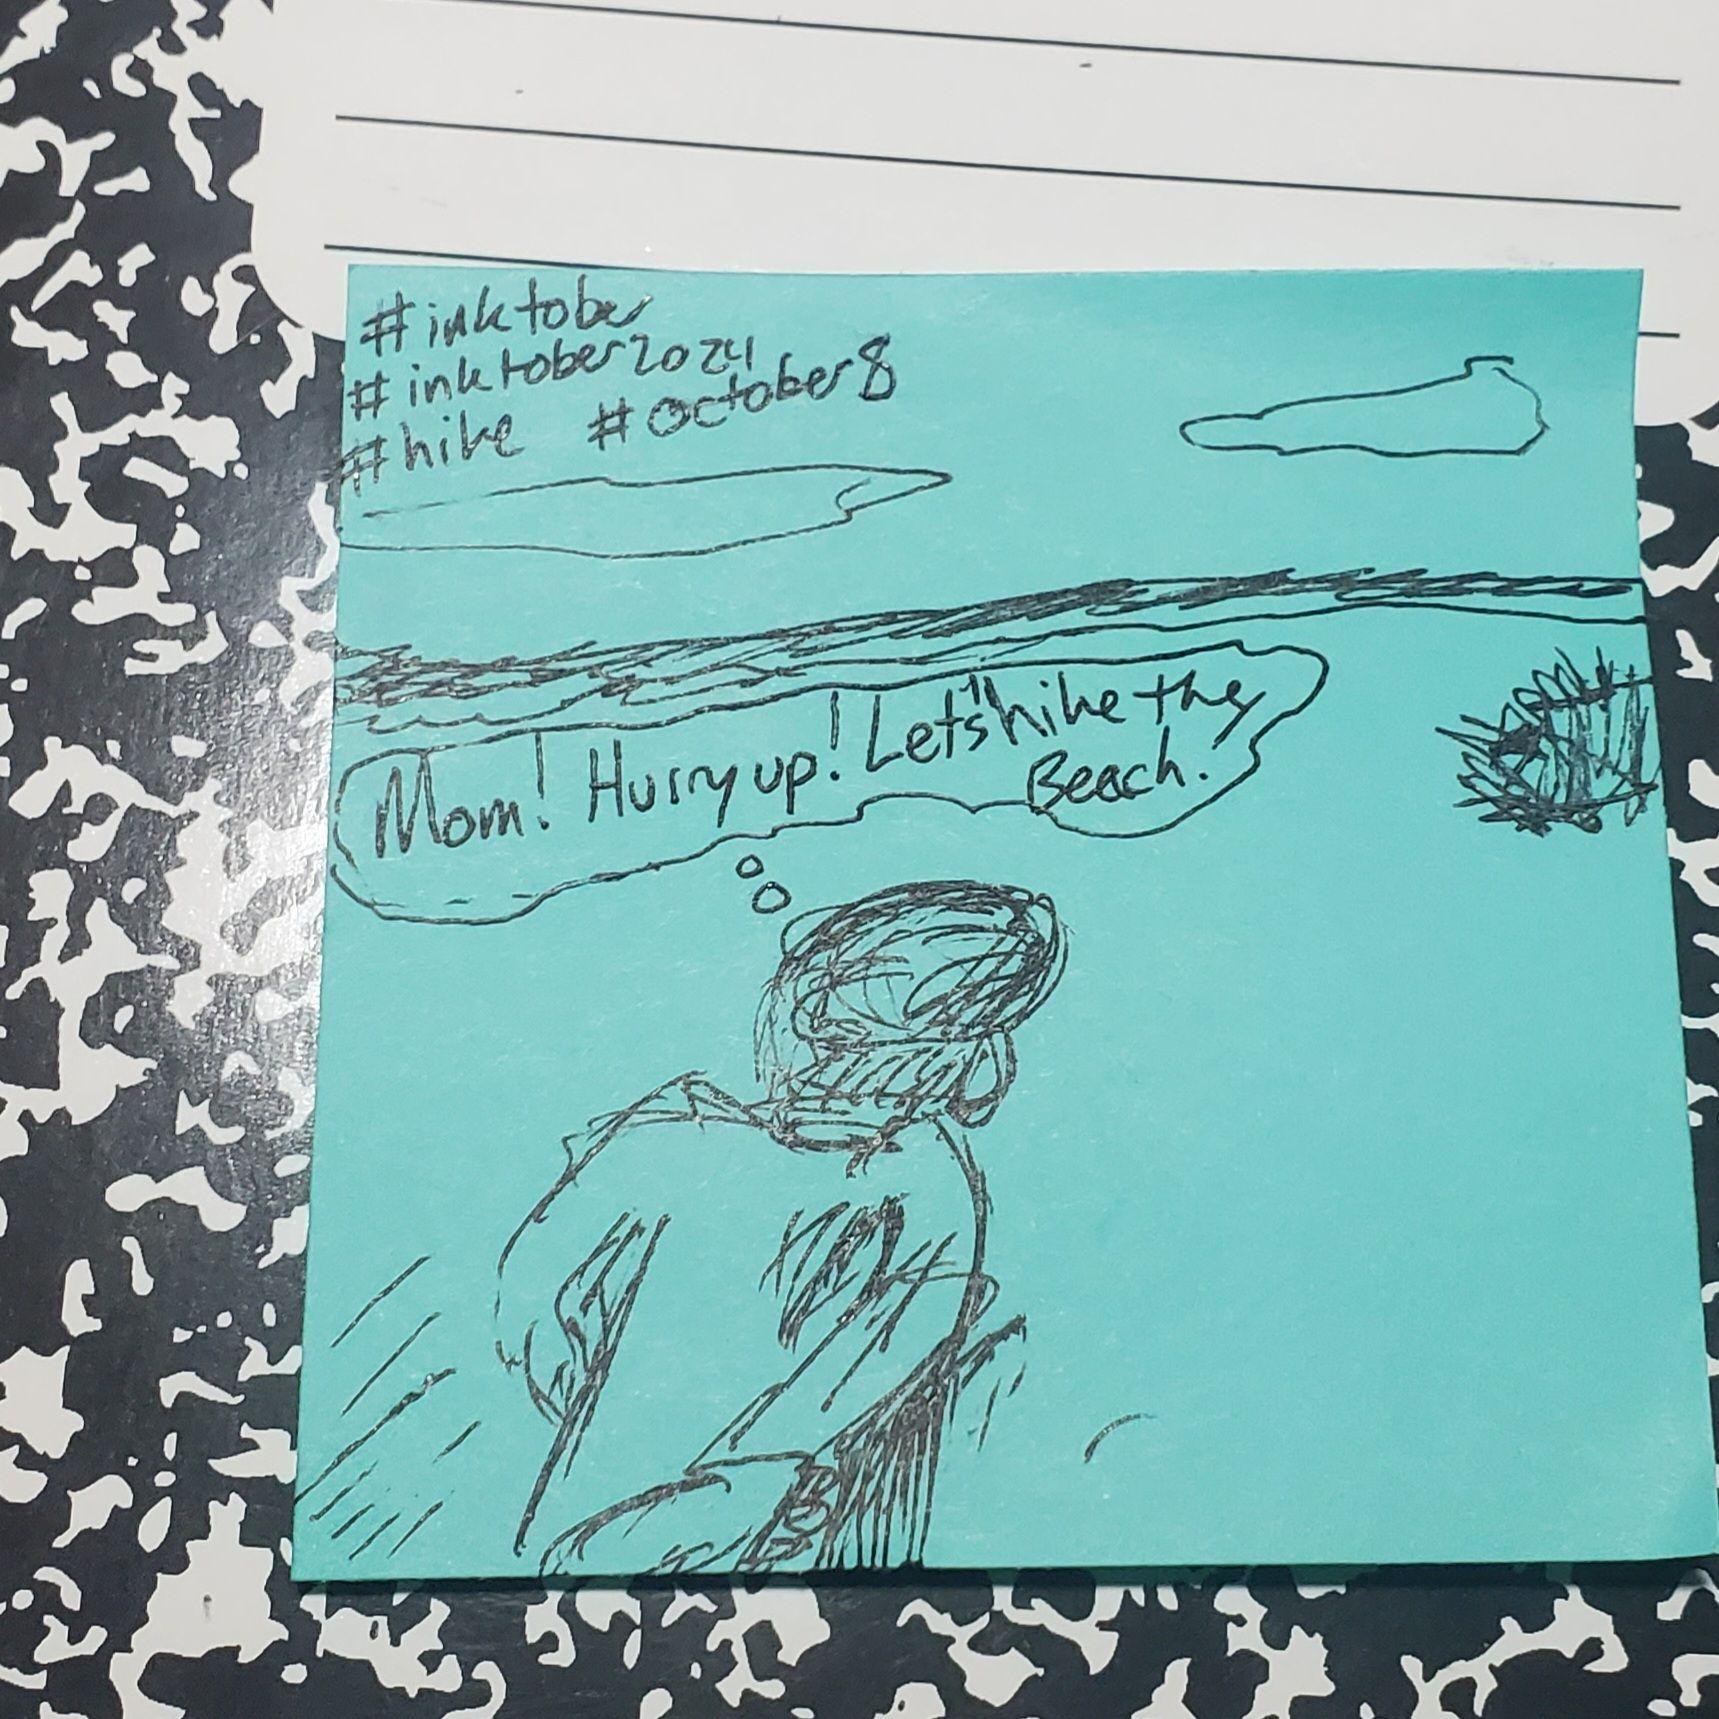 #inktober
#inktober2024
#hike #october8
Mom! Hurry up! Let's hike the
Beach.